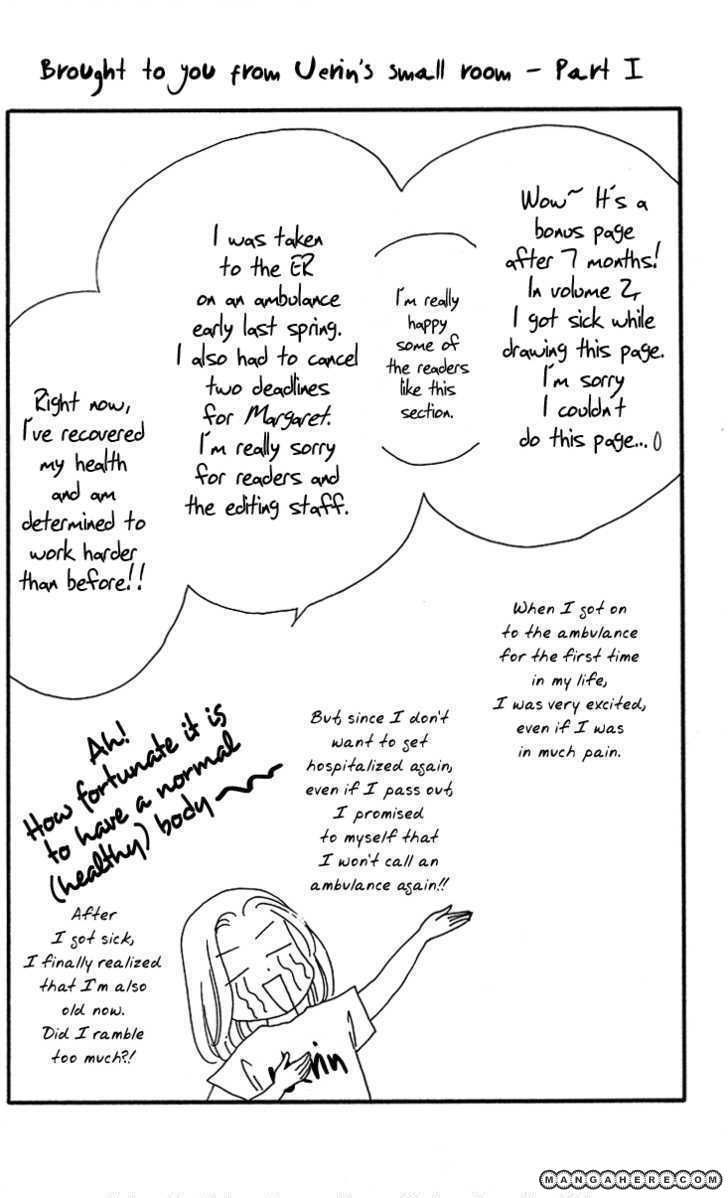 Brought to you from Uerin's small room - Part I
Wow~ It's a
bonus page
after 7 months!
In volume 2,
I got sick while
drawing this page.
I'm sorry
I couldn't
do this page...
I'm really
happy
some of
the readers
like this
section.
I was taken
to the ER
on an ambulance
early last spring.
I also had to cancel
two deadlines
for Margaret.
I'm really sorry
for readers and
the editing staff.
Right now,
I've recovered
my health
and am
determined to
work harder
than before!!
When I got on
to the ambulance
for the first time
in my life,
I was very excited,
even if I was
in much pain.
But, since I don't
want to get
hospitalized again,
even if I pass out,
I promised
to myself that
I won't call an
ambulance again!!
Ah!
How fortunate it is
to have a normal
(healthy) body
After
I got sick,
I finally realized
that I'm also
old now.
Did I ramble
too much?!
MANGAHERE.COM